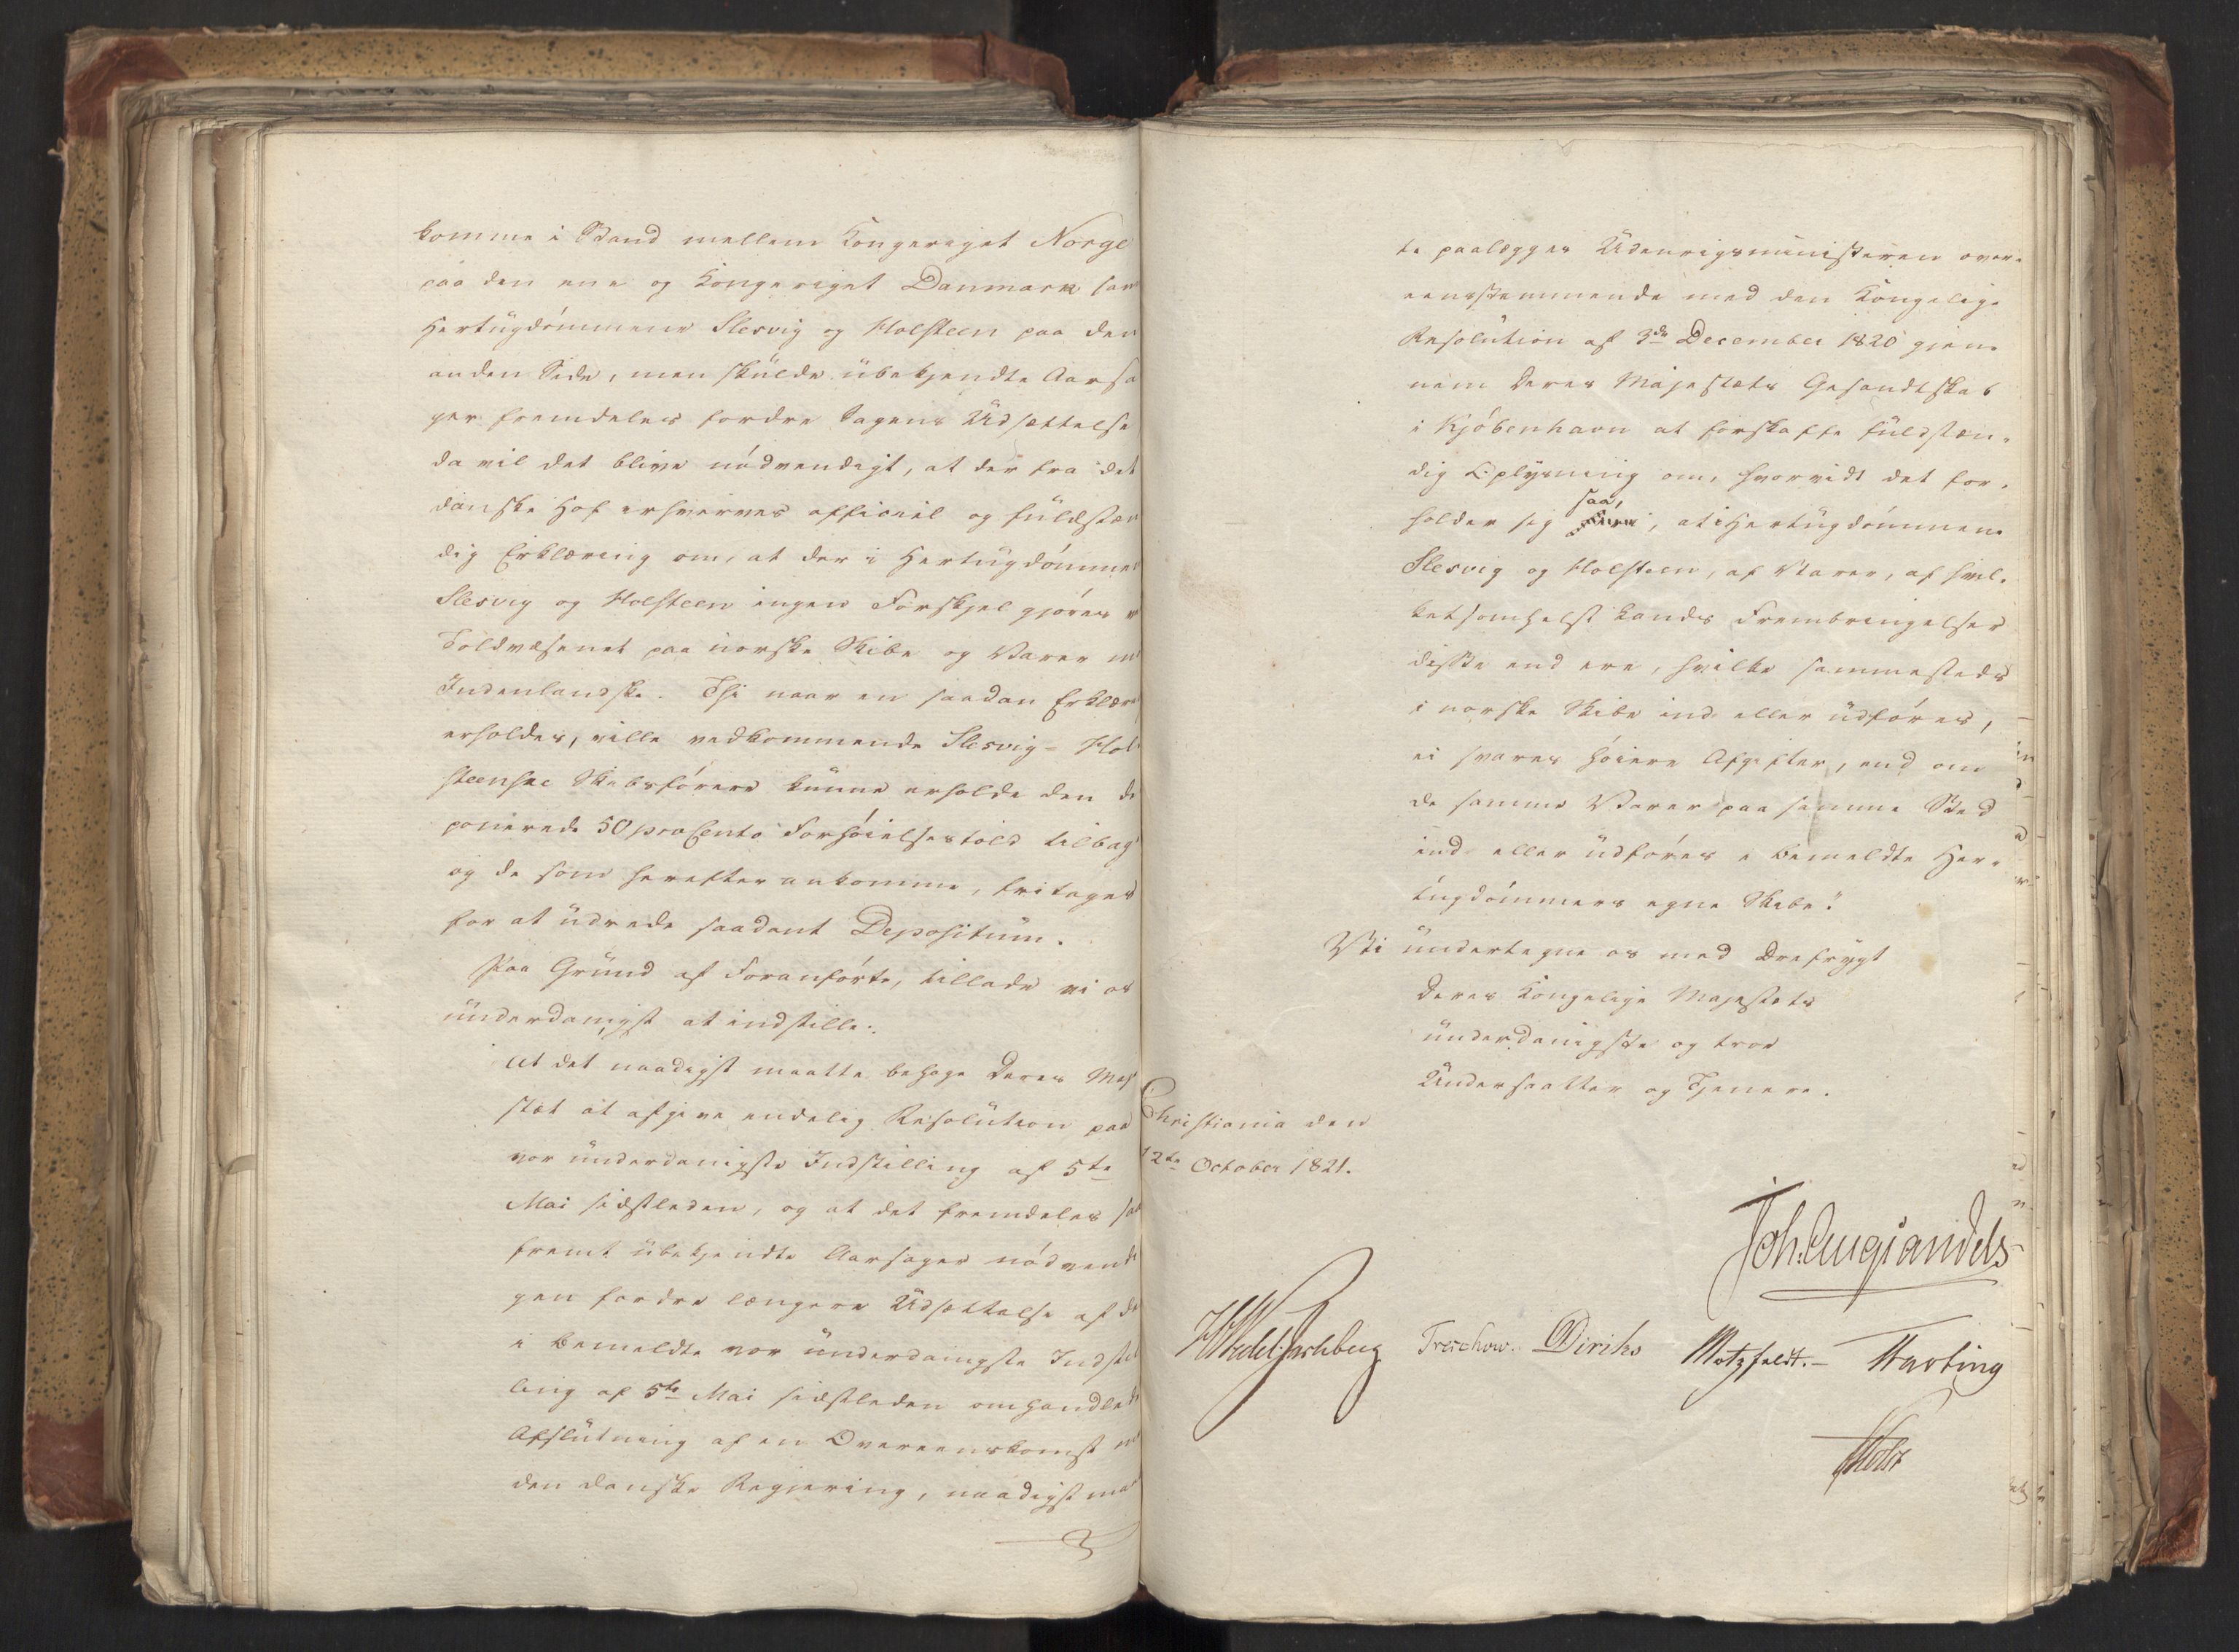 komme i Stand mellem Kongeriget Norge
paa den ene og Kongeriget Danmark sam
Hertugdømmene Slesvig og Holsteen paa den
anden Side, men skulde ubekjendte Aarsa
ger fremdeles fordre Sagens Udsættelse
da vil det blive nødvendigt, at der fra det
danske Hof erhverves officiel og fuldstæn
dig Erklæring om, at der i Hertugdømme
Slesvig og Holsteen ingen Forskjel gjøres
Toldvæsenet paa norske Skibe og Varer
Indenlandske. Thi naar en saadan Erklæri
erholdes, ville vedkommende Slesvig-Hol
steenske Skibsførere kunne erholde den de
ponerede 50 pro Cento Forhøielsestold tilbag
og de som herefter ankomme, fritages
for at udrede saadant Depositum.
Paa Grund af Foranførte, tillade vi os
underdanigst at indstille:
At det naadigst maatte behage Deres Maj
stæt at afgive endelig Resolution paa
vor underdanigste Indstilling af 5te
Mai sidstleden, og at det fremdeles saa
fremt ubekjendte Aarsager nødvendi
gen fordre længere Udsættelse af de
i bemeldte vor underdanigste Indstil
ling af 5te Mai sidstleden omhandlede
Afslutning af en Overeenskomst
den danske Regjering, naadigst maa
te paalægges Udenrigsministeren over-
eensstemmende med den Kongelige
Resolution af 3de December 1820 gjen-
nem Deres Majestæts Gesandtskab
i Kjøbenhavn at forskaffe fuldstæn-
dig Oplysning om, hvorvidt det for-
saa,
holder sig, at i Hertugdømmene
Slesvig og Holsteen, af Varer, af hvil-
ketsomhelst Lands Frembringelser
disse end ere, hvilke sammesteds
i norske Skibe ind eller udføres,
ei svares høiere Afgifter, end om
de samme Varer paa samme Sted
ind eller udføres i bemeldte Her-
tugdømmers egne Skibe."
Vi undertegne os med Ærefrygt
Deres Kongelige Majestæts
underdanigste og troe
Undersaatter og Tjenere.
Christiania den
12te October 1821.
Joh. Aug. Sandels
H Wedel Jarlsberg Treschow. Diriks Motzfeldt. Hasting
Holst